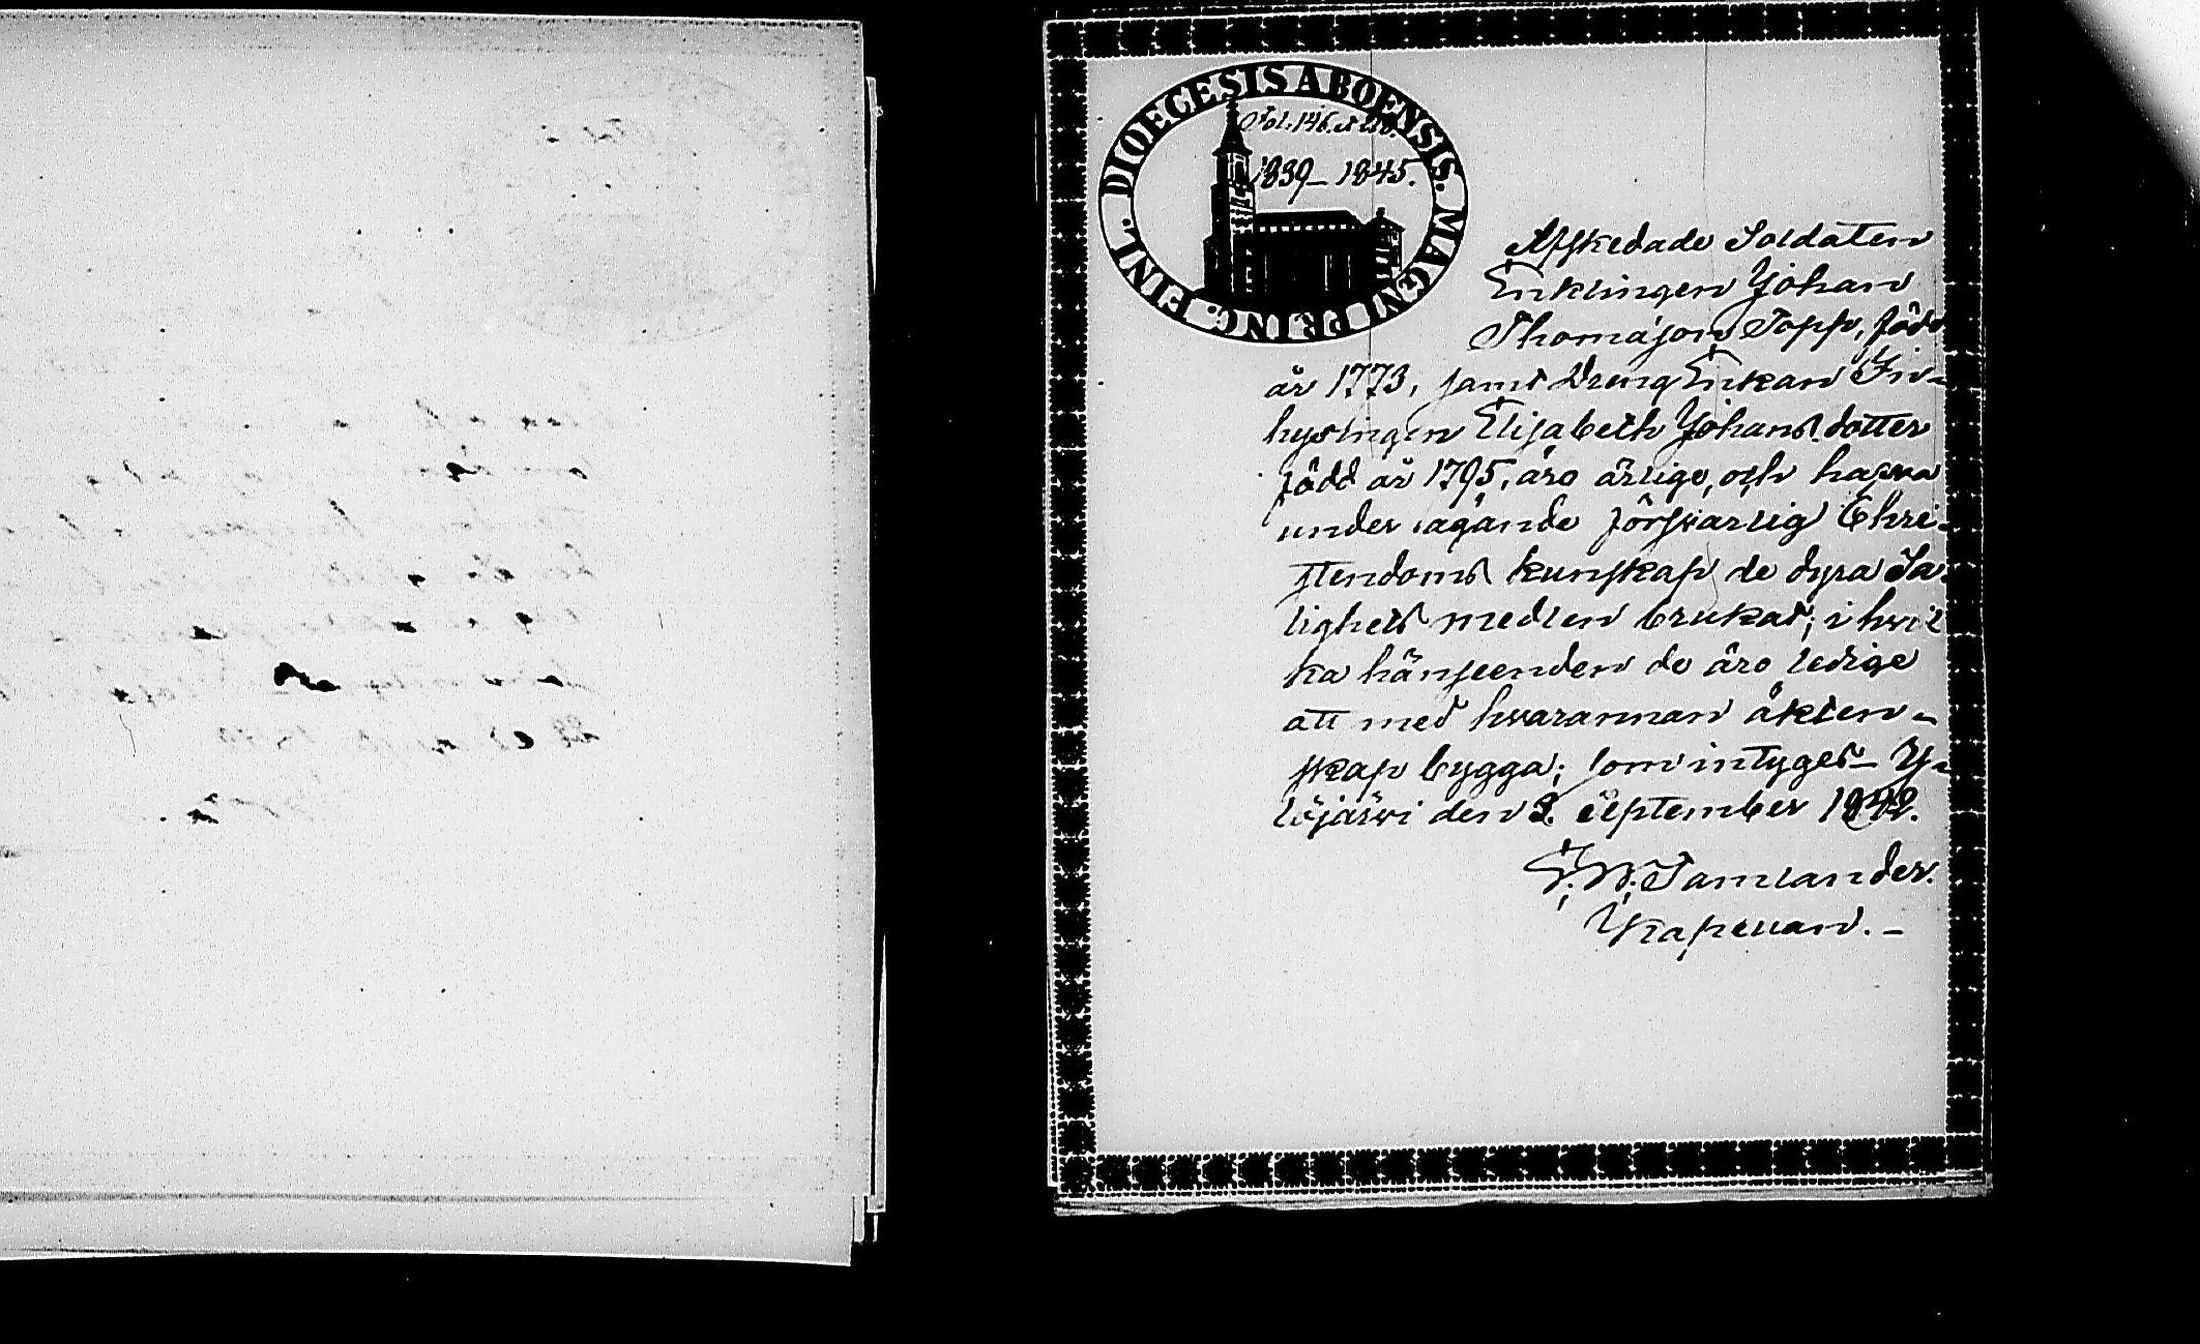 DIOECESIS ABOENSIS. MAGNI PRINC. FINL.
Fol. 146.
1839–1845.
Afskedade Soldaten
Enklingen Johan
Thomasson Topp, född
år 1773, samt Dreng Enkan In-
hysingen Elisabeth Johansdotter
född år 1795, äro ärlige, och hafva
under ägande försvarlig Chri-
stendoms kunskap de dyra Sa-
lighets medlen brukat; i hvil
ka hänseenden de äro ledige
att med hvarannan äkten-
skap bygga; som intygas_ Y-
löjärvi den 3. September 1842.
Tamlander.
Kapellan._